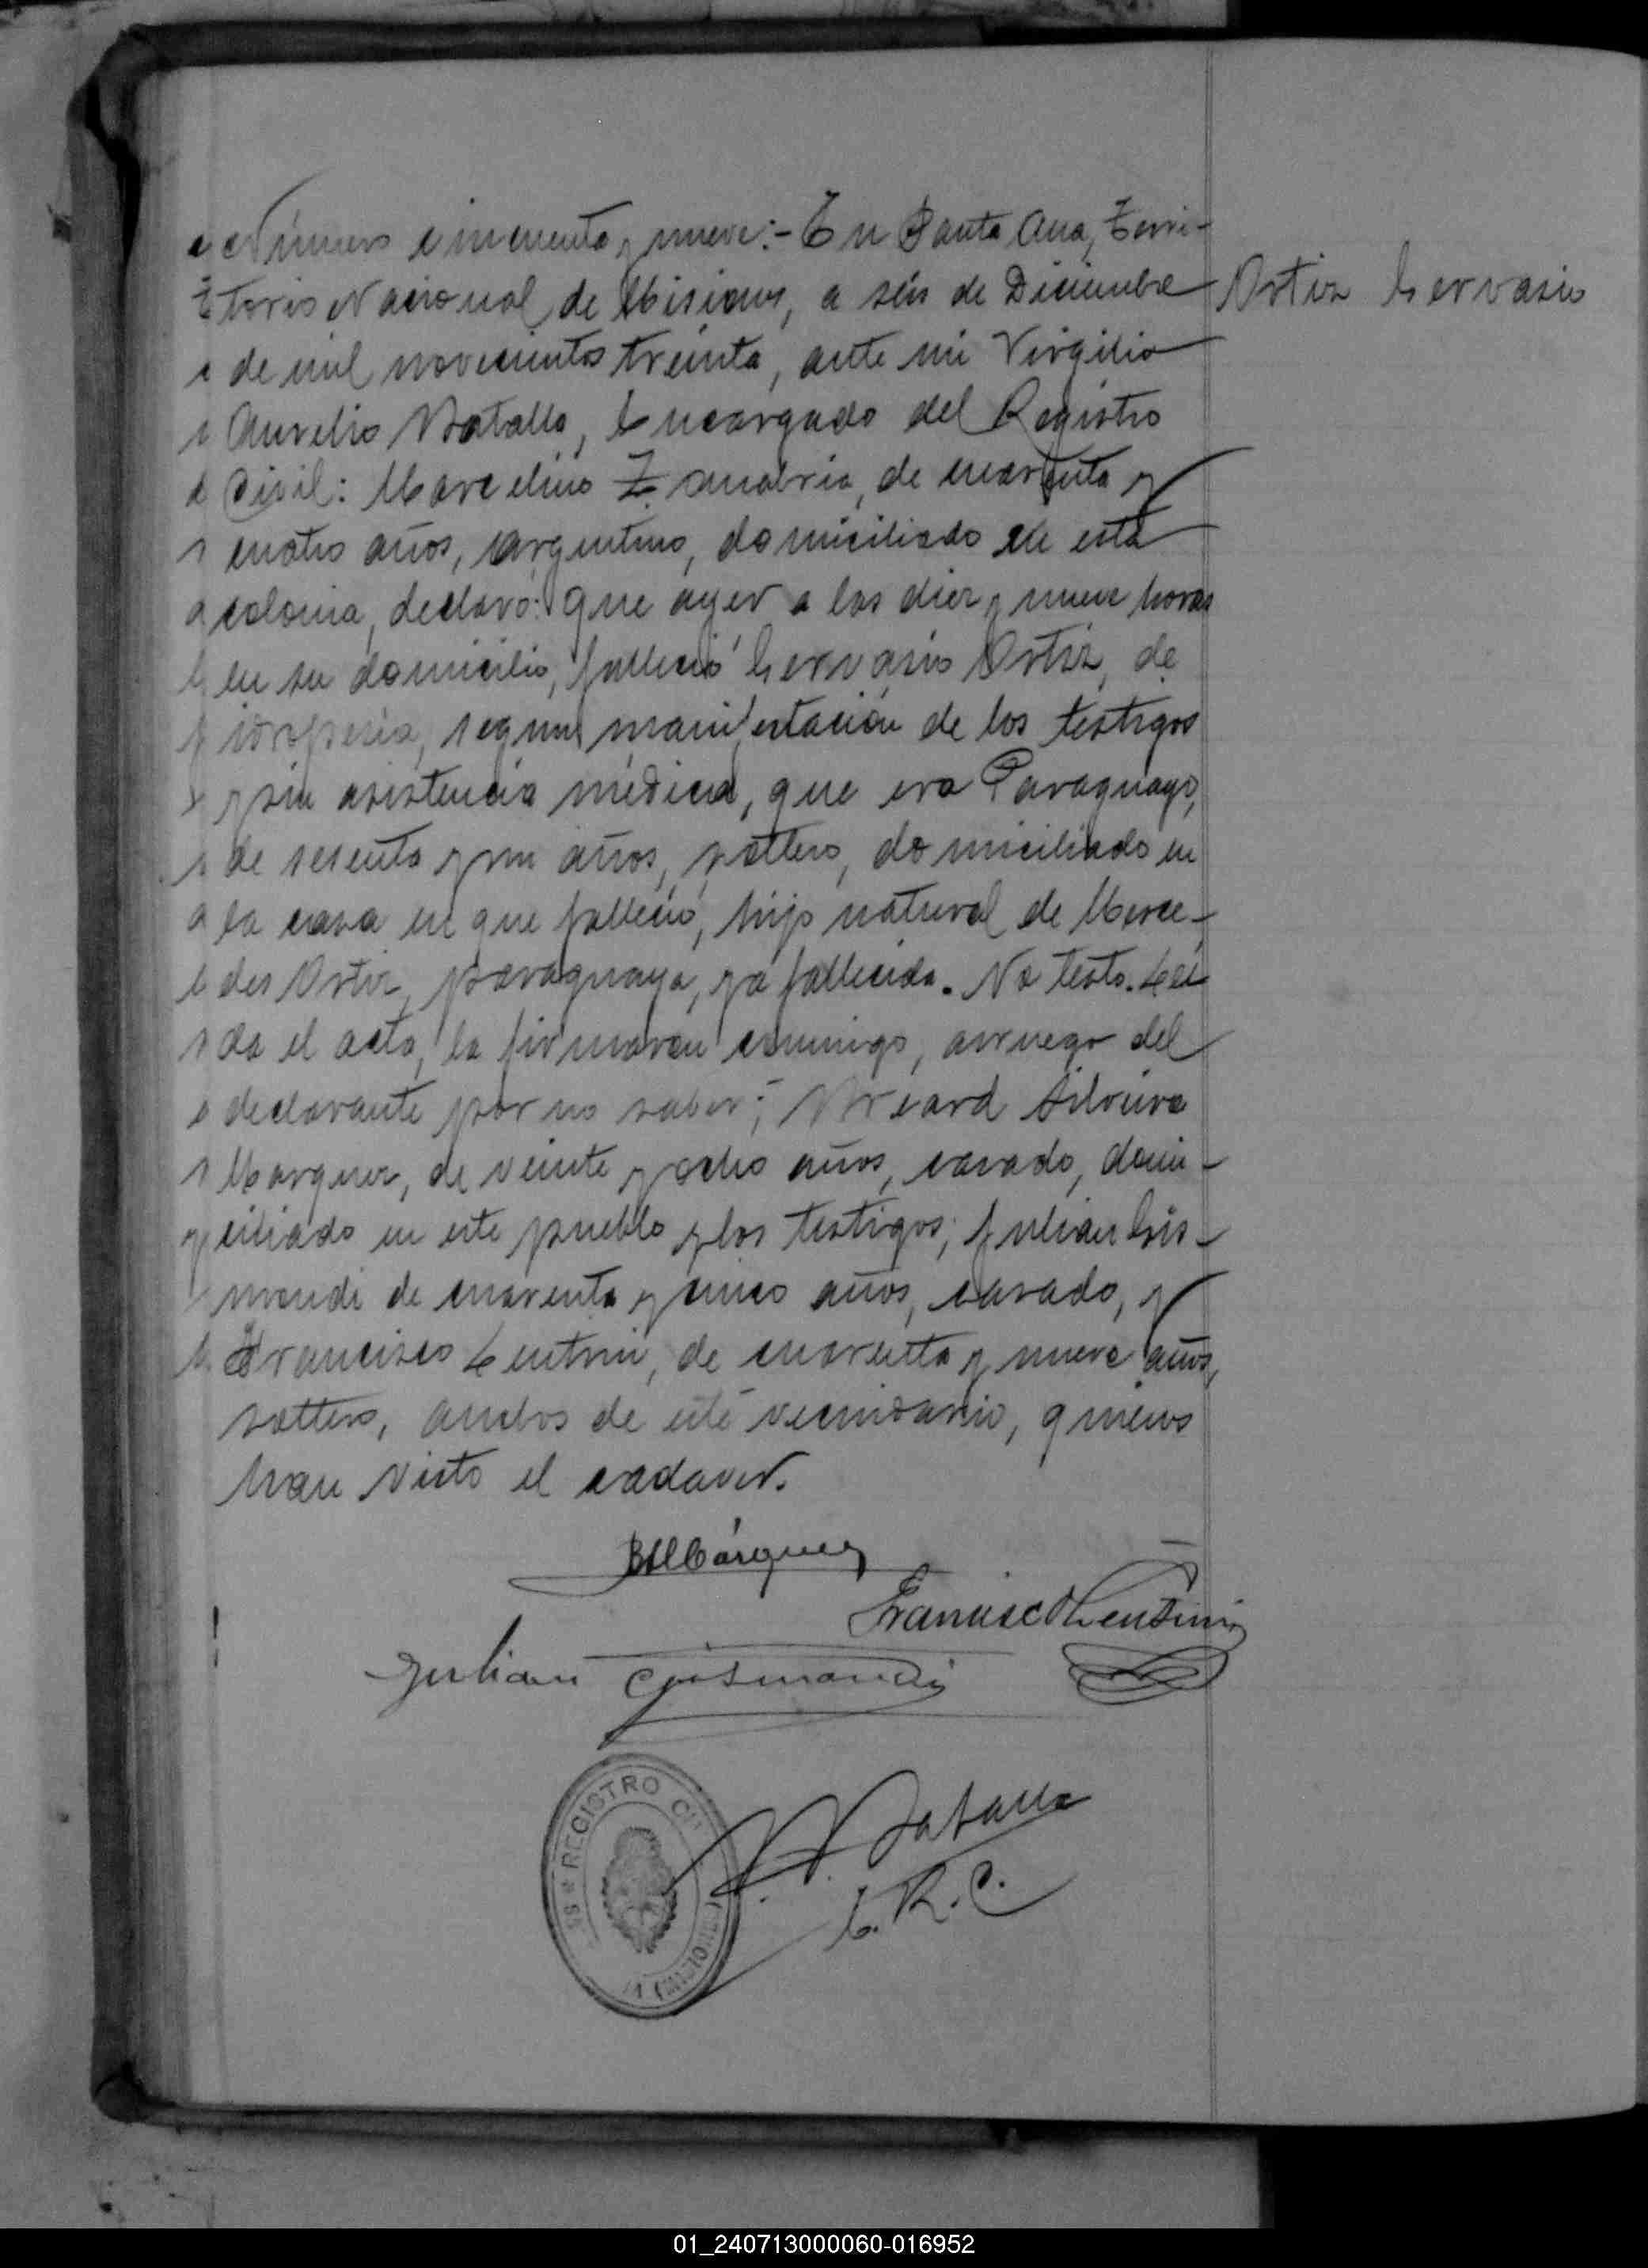 Número cincuenta y nueve:- En Santa Ana, Terri-
torio Nacional de Misiones, a seis de Diciembre
Ortiz Gervasio
de mil novecientos treinta, ante mi Virgilio
Aurelio Batalla, Encargado del Registro
Civil: Marcelino Zanabria, de cuarenta y
cuatro años, argentino, domiciliado en esta
colonia, declaró: que ayer a las diez y nueve horas
en su domicilio, falleció Gervasio Ortiz, de
idropesia, segun manifestación de los testigos
y sin asistencia médica, que era Paraguayo,
de sesenta y un años, soltero, domiciliado en
la casa en que falleció, hijo natural de Merce-
des Ortiz, paraguaya, ya fallecida. No testó. Leí
da el acta, la firmaron conmigo, arruego del
declarante por no saber; Silveira
Marquez, de veinte y ocho años, casado, domi-
ciliado en este pueblo y los testigos; Julian Gris-
mondi de cuarenta y cinco años, casado, y
Francisco Lentini, de cuarenta y nueve años,
soltero, ambos de este vecindario, quienes
han visto el cadaver.
BSMárquez
Francisco Lentini
Julian Grismondi
REGISTRO CIVIL
V. A. Batalla
E. R. C.
01_240713000060-016952